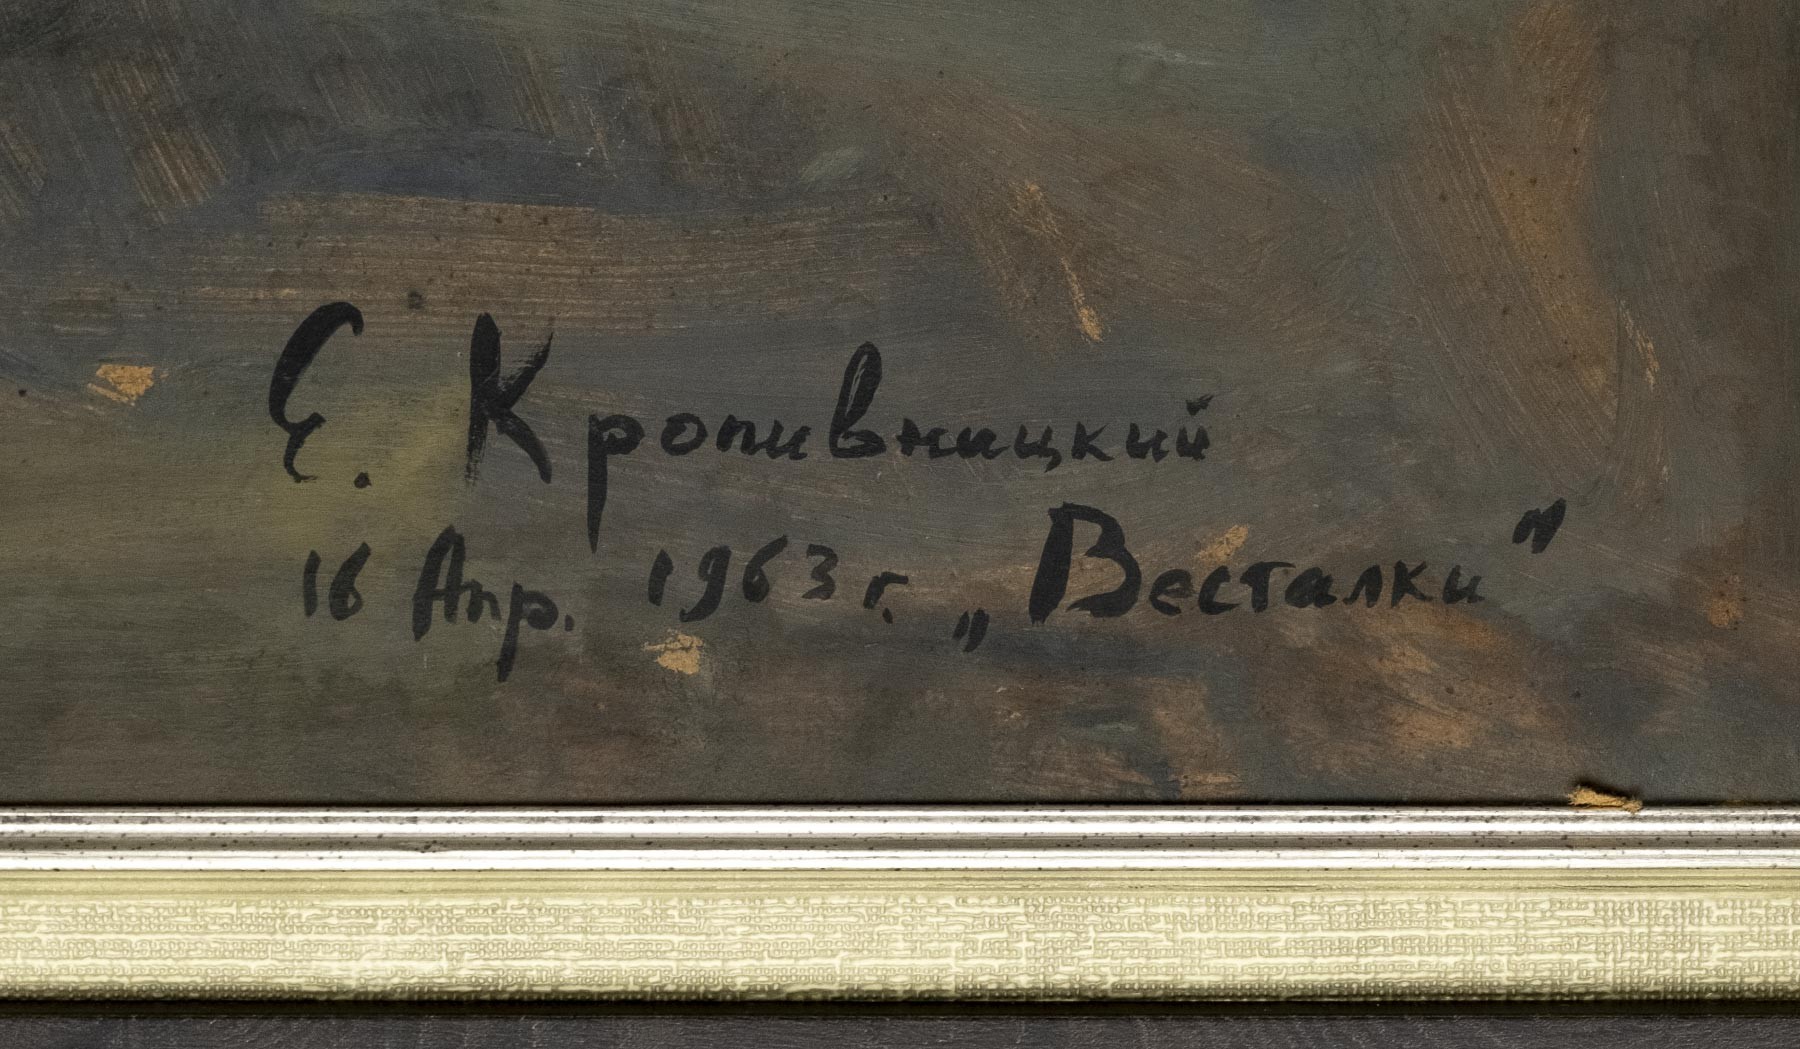 Е. Кропивницкий
16 Апр. 1963 г. „Весталки”